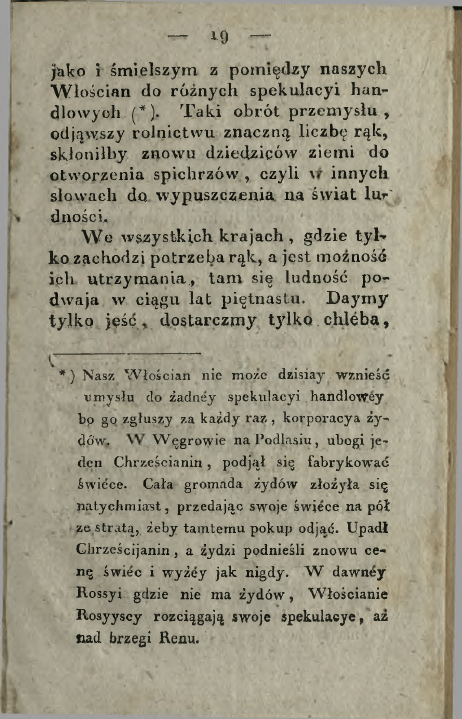 — 19 —
jako i śmielszym z pomiędzy naszych
Włościan do różnych spekulacyi han-
dlowych (*). Taki obrót przemysłu ,
odjąwszy rolnictwu znaczną liczbę rąk,
skłoniłby znowu dziedziców ziemi do
otworzenia spichrzów , czyli w innych
słowach do wypuszczenia na świat lu-
dności.
We wszystkich krajach , gdzie tyl-
ko zachodzi potrzeba rąk, a jest możność
ich utrzymania , tam się ludność po-
dwaja w ciągu lat piętnastu. Daymy
tylko jeść , dostarczmy tylko chléba ,
*) Nasz Włościan nie może dzisiay wznieść
umysłu do żadnéy spekulacyi handlowéy
bo go zgłuszy za każdy raz , korporacya ży-
dów. W Węgrowie na Podlasiu , ubogi je-
den Chrześcianin , podjął się fabrykować
świéce. Cała gromada żydów złożyła się
natychmiast , przedając swoje świéce na pół
ze stratą, żeby tamtemu pokup odjąć. Upadł
Chrześcijanin , a żydzi podnieśli znowu ce-
nę świéc i wyżéy jak nigdy. W dawnéy
Rossyi gdzie nie ma żydów , Włościanie
Rosyyscy rozciągają swoje spekulacye , aż
nad brzegi Renu.